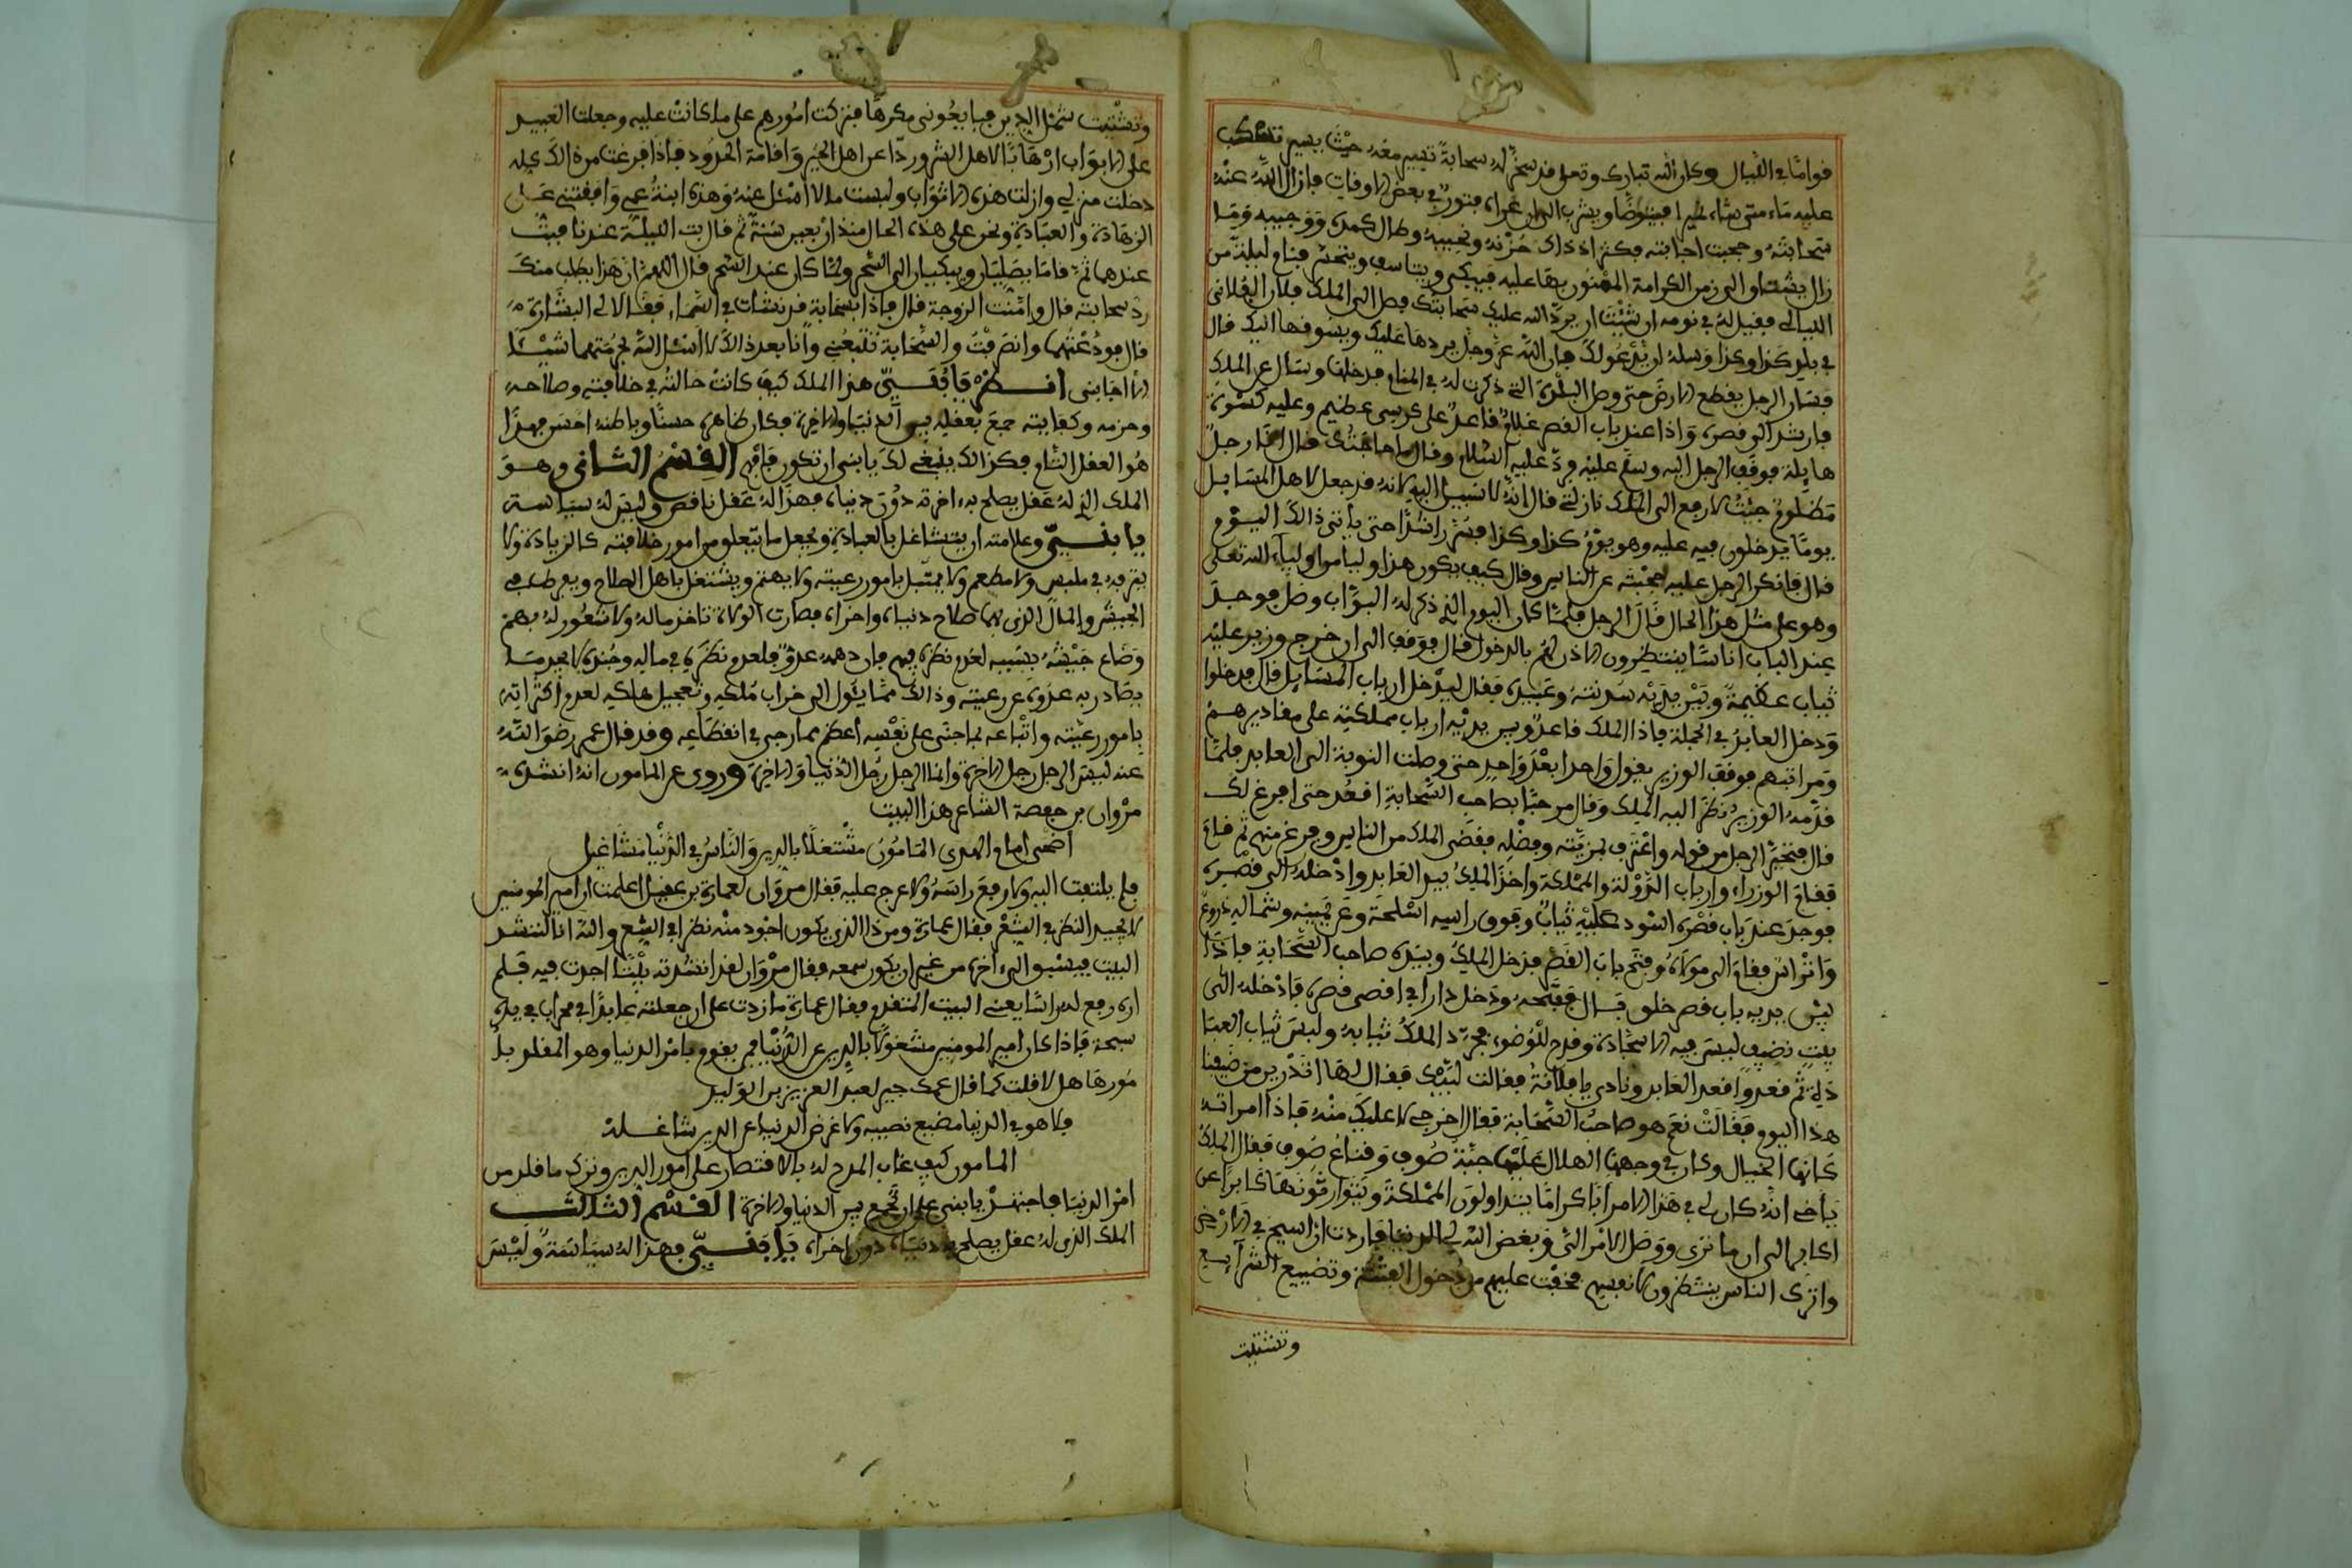 قواما في الليال وكان الله تبارك وتعلى قد سخر له سحابة تسير معه حيث يسير تسكب
عليه ماء متى شاء طهرا فيتوضأ ويشرب الى ان عراه فتور في بعض الاوقات فازال الله عنه
سحابته وحجبت اجابته فكثر اذ ذاك حزنه ونحيبه وطال كمده ووجيبه وما
زال يشتاق الى زمن الكرامة الممنون بها عليه فيبكي ويتاسف ويتحسر فنام ليلة من
الليالي فقيل له في نومه ان شئت ان يرد الله عليك سحابتك فصل الى الملك فلان الفلاني
في بلد كذا وكذا وسله ان يدعو لك فان الله عز وجل يردها عليك ويسوقها اليك قال
فسار الرجل يقطع الارض حتى وصل البلدة التي ذكرت له في المنام فدخلها وسأل عن الملك
فارشد الى قصره واذا عند باب القصر غلام قاعد على كرسي عظيم وعليه كسوة
هايلة فوقف الرجل اليه وسلم عليه ورد عليه السلام وقال ما حاجتك قال انا رجل
مظلوم جئت لارفع الى الملك نازلتي قال انه لا سبيل اليه لانه قد جعل لاهل المسايل
يوما يدخلون فيه عليه وهو يوم كذا وكذا فسر راشدا حتى يأتي ذالك اليوم
قال فانكر الرجل عليه حجبته عن الناس وقال كيف يكون هذا وليا من اولياء الله تعلى
وهو على مثل هذا الحال قال الرجل فلما كان اليوم الذي ذكر له البواب وصل فوجد
عند الباب اناسا ينتظرون الاذن لهم بالدخول قال فوقف الى ان خرج وزير عليه
ثياب عظيمة وبين يديه سدنته وعبيده فقال ليدخل ارباب المسايل قال فدخلوا
ودخل العابد في الجملة فاذا الملك قاعد وبين يديه ارباب مملكته على مقاديرهم
ومراتبهم فوقف الوزير يقول واحدا بعد واحد حتى وصلت النوبة الى العابد فلما
قدمه الوزير نظر اليه الملك وقال مرحبا بصاحب السحابة اقعد حتى افرغ لك
قال فتحير الرجل من قوله واعترف بمزيته وفضله فقضى الملك من الناس وفرغ منهم ثم قام
فقام الوزراء وارباب الدولة والمملكة واخذ الملك بيد العابد وادخله الى قصره
فوجد عند باب قصره اسود عليه ثياب وفوق راسه اسلحة وعن يمينه وشماله دروع
واتراس فقام الى مولاه وفتح باب القصر فدخل الملك وبيده صاحب السحابة فاذا
بين يديه باب قصر خلق قال ففتحه ودخل دارا في اقصى قصره فادخله الى
بيت نضيف ليس فيه الا سجادة وقدح للوضوء فجرد الملك ثيابه ولبس ثياب العبا
دة ثم قعد واقعد العابد ونادى يا فلانة فقالت لبيك فقال لها اتدرين من ضيفنا
هذا اليوم فقالت نعم هو صاحب السحابة فقال اخرجي لا عليك منه فاذا امراته
كانها الخيال وكان في وجهها الهلال عليها جبة صوف وقناع صوف فقال الملك
يا اخي انه كان لي في هذا الامر اباء كراما يتداولون المملكة ويتوارثونها كابرا عن
اكابر الى ان ما ترى ووصل الامر الي وبغض الله لي الدنيا فاردت ان اسيح في الارض
واترك الناس ينتظرون لانفسهم فخفت عليهم من دخول الفتنة وتضييع الشرايع
وتشتيت
وتشتيت شمل الدين فبايعوني مكرها فتركت امورهم على ما كانت عليه وجعلت العبيد
على الابواب ارهابا لاهل الشر وردا عن اهل الخير واقامة الحدود فاذا فرغت من ذالك كله
دخلت منزلي وازلت هذه الاثواب ولبست ما لا اسئل عنه وهذه ابنة عمي وافقتني على
الزهادة والعبادة ونحن على هذه الحال منذ اربعين سنة ثم قال بت الليلة عندنا فبت
عندهما ثم قاما يصليان ويبكيان الى السحر ولما كان عند السحر قال اللهم ان هذا يطلب منك
رد سحابته قال وامنت الزوجة قال فاذا بسحابة قد نشات في السماء فقالا لي البشارة
قال فودعتهما وانصرفت والسحابة تتبعني وانا بعد ذالك لا اسئل الله بحرمتهما شيئا
الا اجابني انظر يا بني هذا الملك كيف كانت حالته في خلافته وصلاحه
وحزمه وكفايته جمع بعقله بين الدنيا والاخرة فكان ظاهره حسنا وباطنه احسن فهذا
هو العقل التام فكذالك ينبغي لك يا بني ان تكون فافهم القسم الثاني وهو
الملك الذي له عقل يصلح به اخرته دون دنياه فهذا له عقل ناقص وليس له سياسة
يا بني وعلامته ان يتشاغل بالعبادة ويجعل ما يتعلق من امور خلافته كالزيادة ولا
يترفه في ملبس ولا مطعم ولا يمتثل بامور رعيته ولا يهتم ويشتغل باهل الصلاح ويفرط في
الجيش والمال الذي بهما صلاح دنياه واخراه فصارت الولاة تاخذ ماله ولا شعور له بهم
وضاع جيشه بسببه لعدم نظره فيهم فان دهمه عدو فلعدم نظره في ماله وجنده لا يجد ما
يصادر به عدوه عن رعيته وذالك مما يئول الى خراب ملكه وتعجيل هلكه لعدم اكتراثه
بامور رعيته واتباعه لما جنى على نفسه اعظم مما رجى في انقطاعه وقد قال عمر رضي الله
عنه ليس الرجل رجل الاخرة وانما الرجل رجل الدنيا والاخرة وروي عن المامون انه انشده
مروان بن حفصة الشاعر هذا البيت
اضحى امام الهدى المامون مشتغلا بالدين والناس في الدنيا مشاغيل
فلم يلتفت اليه ولا رفع راسه ولا عرج عليه فقال مروان لعمارة بن عقيل اعلمت ان امير المومنين
لا يجيد النظر في الشعر فقال عمارة ومن ذا الذي يكون اجود منه نظرا في الشعر والله انا لننشد
البيت فيسبق الى اخره من غير ان يكون سمعه فقال مروان لقد انشدته بيتا اجدت فيه فلم
اره رفع له راسا يعني البيت المتقدم فقال عمارة ما زدت على ان جعلته عابدا في محراب في يده
سبحة فاذا كان امير المومنين مشغولا بالدين عن الدنيا فمن يقوم بامر الدنيا وهو المقلد بأ
مورها هل لا قلت كما قال عمك جرير لعبد العزيز بن الوليد
فلا هو في الدنيا مضيع نصيبه ولا غرض الدنيا عن الدين شاغله
المامون كيف عاب المدح له بالاقتصار على امور الدين وترك ما قلد من
امر الدنيا فاجتهد يا بني على ان تجمع بين الدنيا والاخرة القسم الثالث
الملك الذي له عقل يصلح به دنياه دون اخراه يا بني فهذا له سياسة وليس